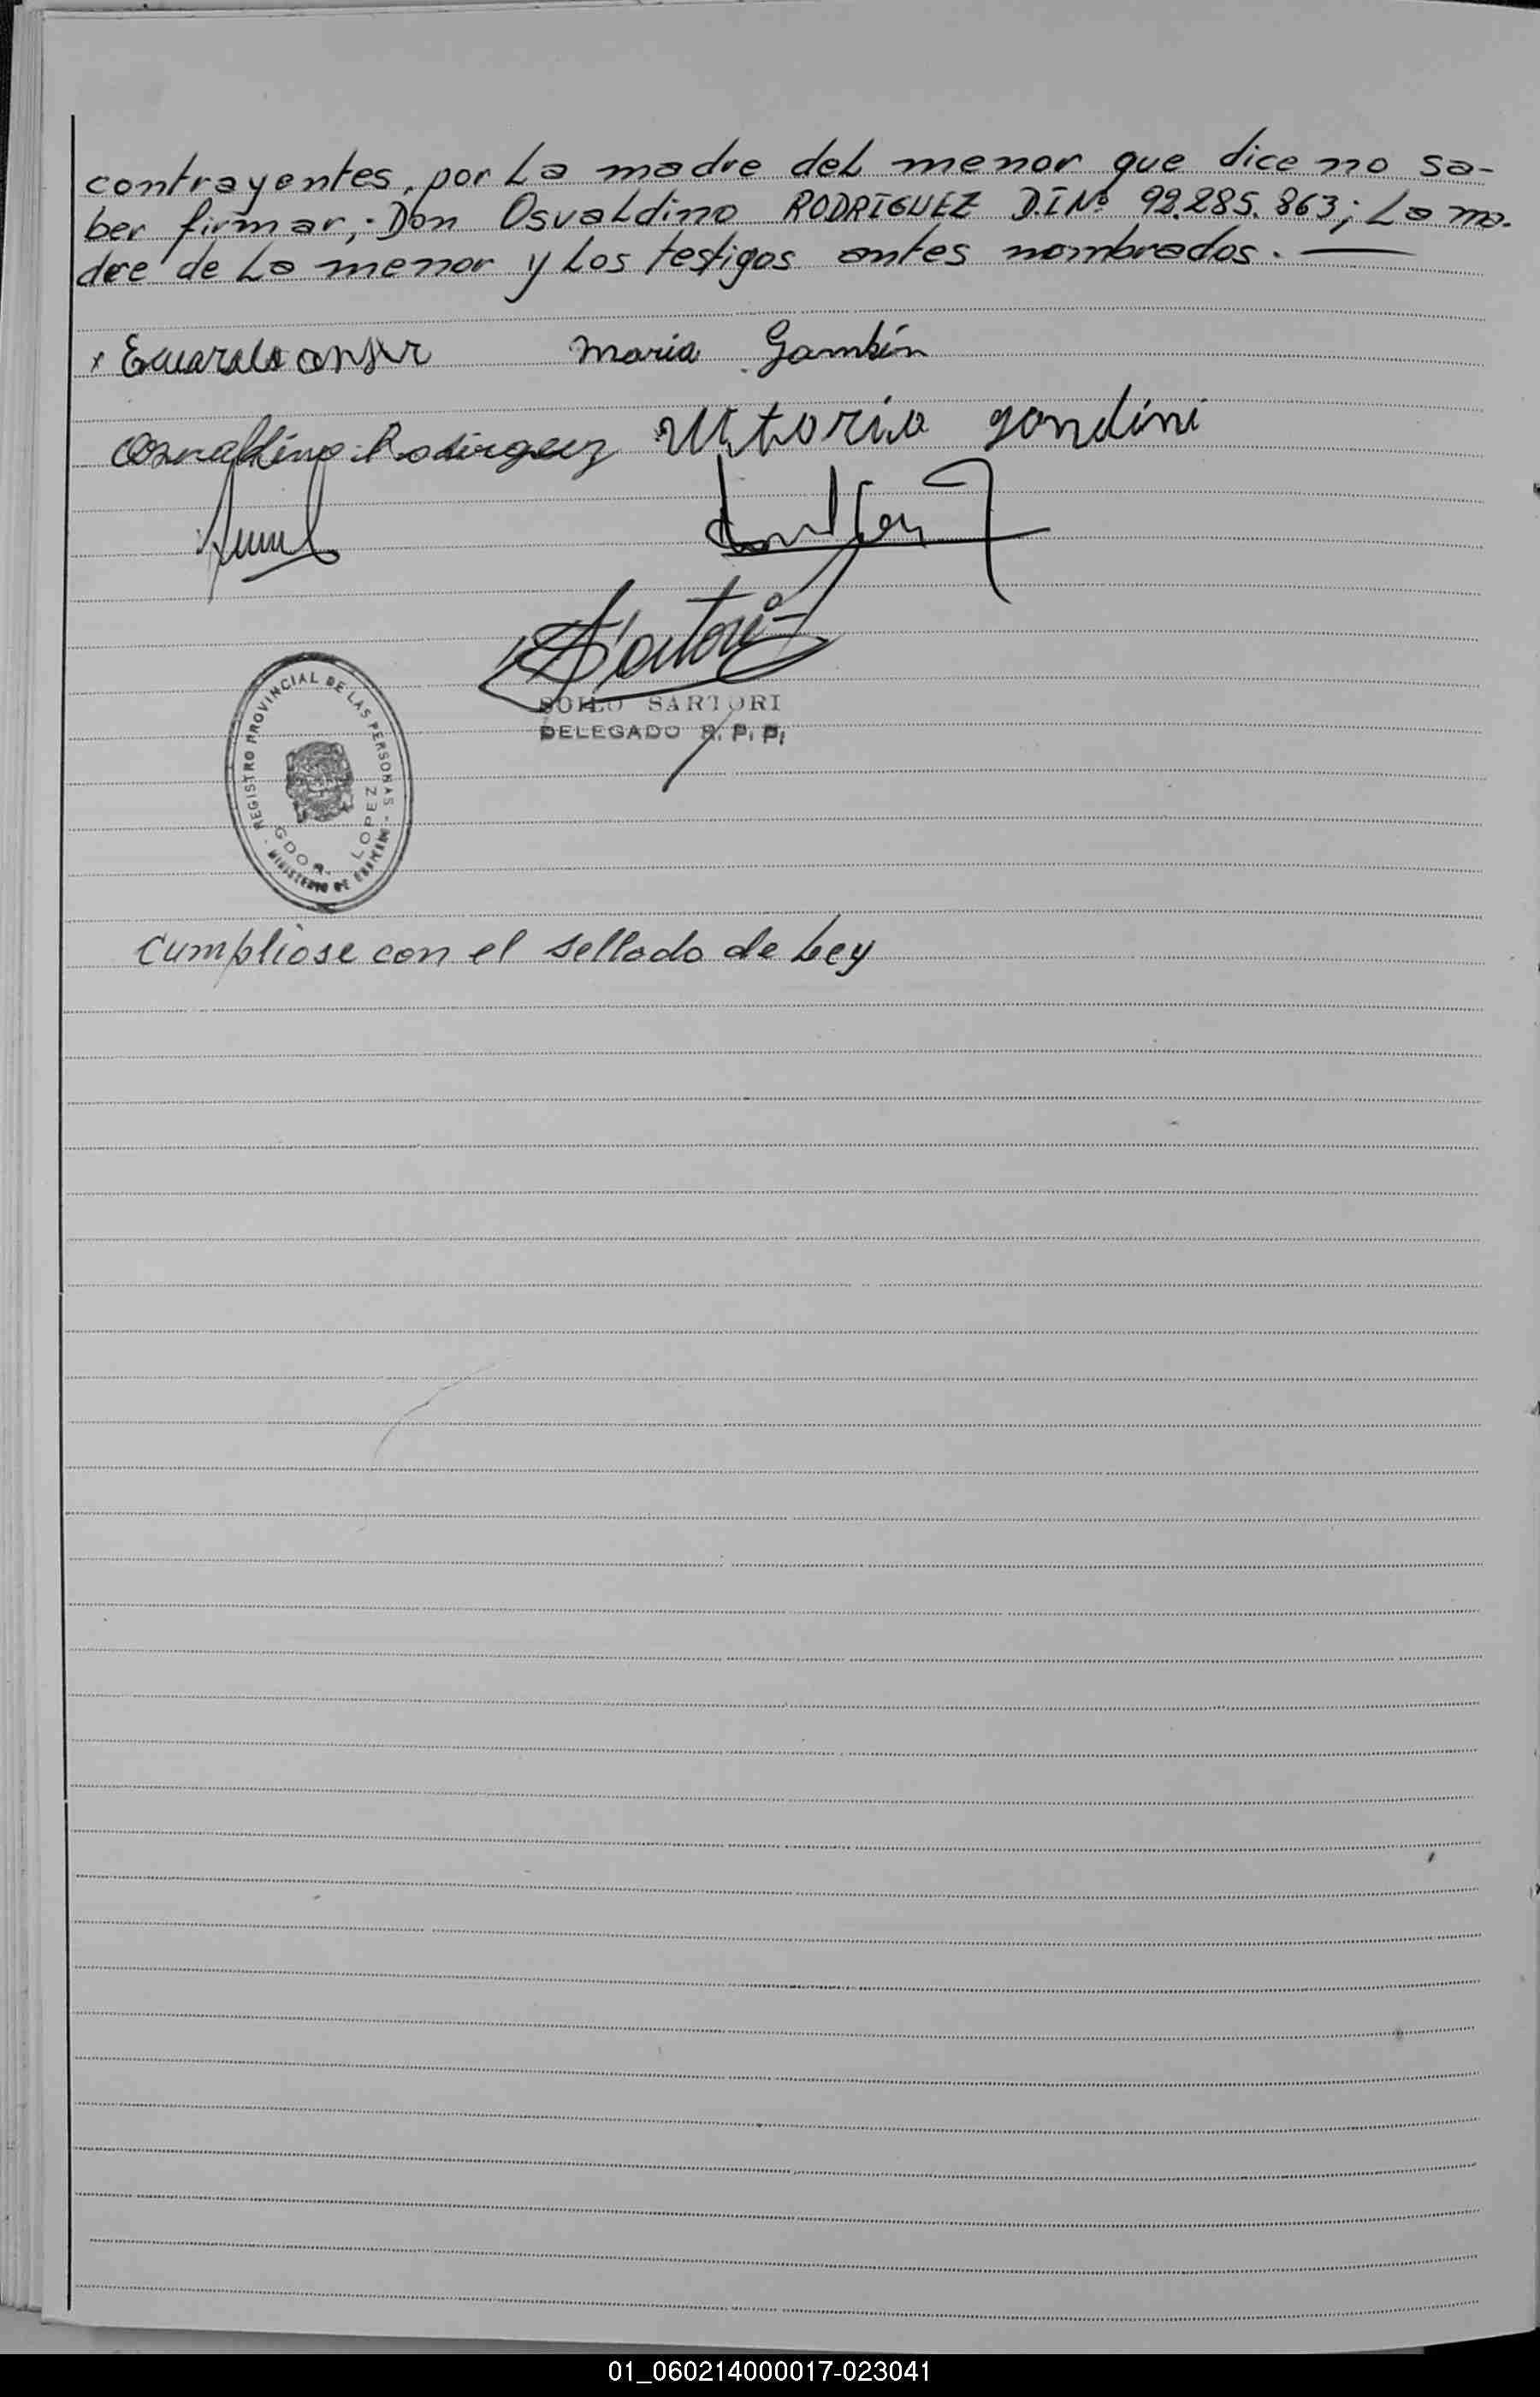 contrayentes, por La madre del menor que dice no sa-
ber firmar; Don Osvaldino RODRIGUEZ D.I Nº 92.285.863; La ma-
dre de La menor y Los testigos antes nombrados.
x
Maria
Osvaldino Rodirguez
Vitoria gondini
Sartori
SOILO SARTORI
DELEGADO R. P. P.
REGISTRO PROVINCIAL DE LAS PERSONAS - MINISTERIO DE
GDOR. LOPEZ
Cumpliose con el sellado de Ley
01_060214000017-023041